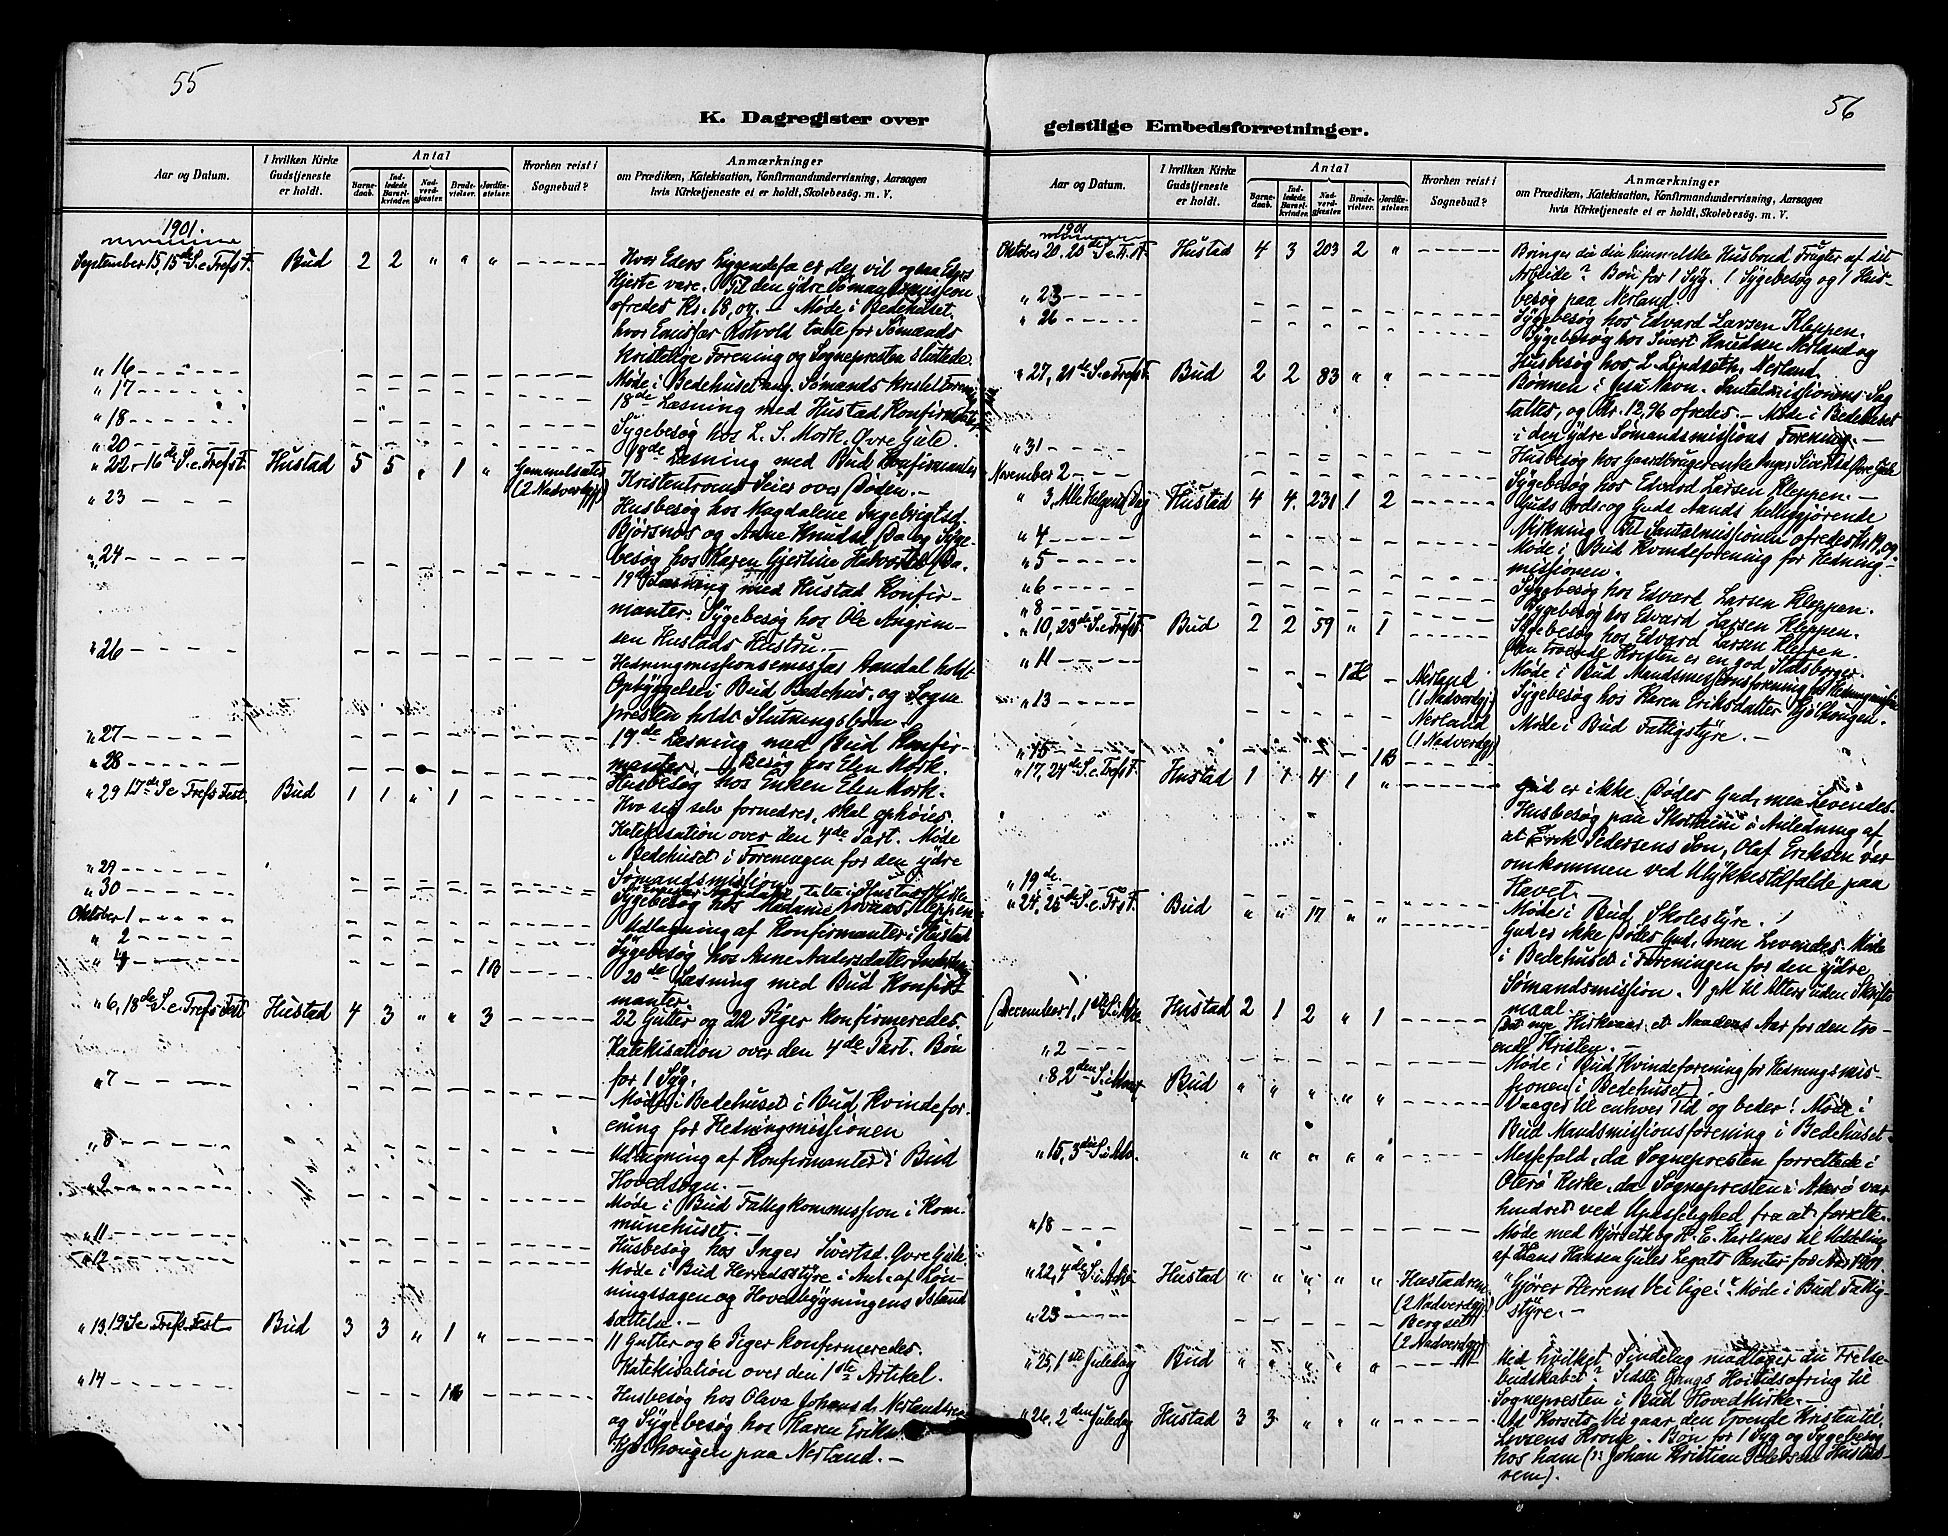 55
K. Dagregister over
Aar og Datum.
I hvilken Kirke Gudstjeneste er holdt.
Antal
Barnedaab.
Indledede Barselkvinder.
Nadverdgjæster.
Brudevielser.
Jordfæstelser.
Hvorhen reist i Sognebud?
Anmærkninger
om Prædiken, Katekisation, Konfirmandundervisning, Aarsagen
hvis Kirketjeneste ei er holdt, Skolebesøg. m. V.
1901.
September 15, 15de S. e. Trefs F. Bud 2 2 " " "
Hvor Eders Liggendefæ er, der vil ogsaa Eders
Hjerte være. Til den ydre Sømandsmission
ofredes Kr. 18,07. — Møde i Bedehuset,
hvor Emissær talte for Sømænds
Kristelige Forening og Sognepresten sluttede.
" 16
Møde i Bedehuset ang. Sømands kristel. Forening
" 17
18de Læsning med Hustad Konfirmanter.
" 18
Sygebesøg hos L. S. Mork. Øvre Gule.
" 20
18de Læsning med Bud Konfirmanter
" 22 - 16de S. e. Trefs F. Hustad 5 5 " 1 " Gammelsæter (2 Nadverdgj)
Kristentroens Seier over Døden. —
" 23
Husbesøg hos Magdalene Ingebrigtsd.
Bjørsnøs og Anne Knudsd. Da og Syge-
besøg hos Karen Gjertine Halvorsd. Da.
" 24
19de Læsning med Hustad Konfir-
manter. Sygebesøg hos Ole Angrim-
sen Hustads Hustru. —
" 26
Hedningmissionsemissær Aandal holdt
Opbyggelse i Bud Bedehus, og Sogne
presten holdt Slutningsbøn
" 27
19de Læsning med Bud Konfir-
manter. — Besøg hos Elen Mork.
" 28
Husbesøg hos Enken Elen Mork.
" 29 17de S. e. Trefs Fest Bud 1 1 " 1 -
Hvo sig selv fornedrer, skal ophøies.
Katekisation over den 4de Part. Møde
i Bedehuset i Foreningen for den ydre
Sømandsmission
" 29
" 30
Oktober 1
Udtagning af Konfirmanter i Hustad
" 2
Sygebesøg hos Anne Andersdatter
" 4 1B
20de Læsning med Bud Konfir-
manter.
" 6, 18de S. e. Trefs Fest Hustad 4 3 " " 3
22 Gutter og 22 Piger konfirmeredes.
Katekisation over den 4de Part. Bøn
for 1 Syg.
" 7
Møde i Bedehuset i Bud Kvindefor-
ening for Hedningmissionen
" 8
Udtagning af Konfirmanter i Bud
Hovedsogn. —
" 9
Møde i Bud Fattigkommission i Kom-
munehuset. —
" 11
Husbesøg hos Inger Sivertsd. Øvre Gule.
" 12
Møde i Bud Herredsstyre i Anl. af Løn-
ningssagen og Hovedbygningens Istand
sættelse. —
" 13. 19 S. e. Trefs. Fest Bud 3 3 " 1 "
11 Gutter og 6 Piger konfirmeredes.
Katekisation over den 1ste Artikel.
" 14
Husbesøg hos Olava Johansd. Nerlandsrem
og Sygebesøg hos Karen Eriksd.
Kjølhougen paa Nerland. —
56
geistlige Embedsforretninger.
Aar og Datum.
I hvilken Kirke Gudstjeneste er holdt.
Antal
Barnedaab.
Indledede Barselkvinder.
Nadverdgjæster.
Brudevielser.
Jordfæstelser.
Hvorhen reist i Sognebud?
Anmærkninger
om Prædiken, Katekisation, Konfirmandundervisning, Aarsagen
hvis Kirketjeneste ei er holdt, Skolebesøg. m. V.
1901
Oktober 20. 20de S. e. Tr. F. Hustad 4 3 203 2 "
Bringer du din himmelske Husbond Frugter af dit
Arbeide? Bøn for 1 Syg. 1 Sygebesøg og 1 Hus-
besøg paa Nerland.
" 23
Sygebesøg hos Edvard Larsen Kleppen.
" 26
Sygebesøg hos Sivert Knudsen Nerland og
Husbesøg hos L. Lindseth, Nerland.
" 27, 21de S. e. Trefs F. Bud 2 2 83 " "
Bønnen i Jesu Navn. Santalmissionens Sag
taltes, og Kr. 12,96 ofredes. — Møde i Bedehuset
i den ydre Sømandsmissions Forening. —
" 31
Husbesøg hos Gaardbrugerenke Inger Sivertsd. Øvre Gule
November 2
Sygebesøg hos Edvard Larsen Kleppen. —
" 3, Alle Helgens Dag Hustad 4 4. 231 1 2
Guds Ords og Guds Aands helliggjørende
Virkning. Til Santalmissionen ofredes Kr. 19,09.
" 4
Møde i Bud Kvindeforening for Hedning-
missionen.
" 5
Sygebesøg hos Edvard Larsen Kleppen.
" 6
Sygebesøg hos Edvard Larsen Kleppen.
" 8
Sygebesøg hos Edvard Larsen Kleppen.
" 10, 23de S. e. Trefs F. Bud 2 2 59 " 1
Den troende Kristen er en god Statsborger.
" 11 Nerland (1 Nadverdgj)
Møde i Bud Mandsmissionsforening for Hedningemission
Sygebesøg hos Karen Eriksdatter Kjølhougen.
" 13 Nerland (1 Nadverdgj)
Møde i Bud Fattigstyre. —
" 15 1B
" 17, 24de S. e. Trefs F. Hustad 1 1 14 1 "
Gud er ikke Dødes Gud, men Levendes.
Husbesøg paa Skotheim i Anledning af
at Erik Pedersens Søn, Olaf Eriksen var
omkommen ved Ulykkestilfælde paa
Havet. —
" 19de
Møde i Bud Skolestyre.
" 24, 25de S. e. Trs F. Bud " " 17 " "
Gud er ikke Dødes Gud, men Levendes. Møde
i Bedehuset i Foreningen for den ydre
Sømandsmission. 1 gik til Alters uden Skrifte-
maal.
December 1, 1ste S. i Adv. Hustad 2 1 2 " 1
Det nye Kirkeaar et Naadens Aar for den tro-
ende Kristen. —
" 2
Møde i Bud Kvindeforening for Hedningsmis-
sionen i Bedehuset
" 8, 2den S. i Adv. Bud " " " " "
Vaager til enhver Tid og beder! Møde i
Bud Mandsmissionsforening i Bedehuset.
" 15, 3die S. i Adv. " " " " "
Messefald, da Sognepresten forrettede i
Oterø Kirke, da Sognepresten i Akerø var
hindret ved Upasselighed fra at forrette.
" 18
Møde med Bjørseth og H. E. Karlsnes til Uddeling
af Hans Hansen Gules Legats Renter for Aar 1901
" 22, 4de S. i Adv. Hustad " " " " " Hustadrem (2 Nadverdgj)
"Gjører Herrens Vei lige!" Møde i Bud Fattig-
styre. —
" 23 Bergset (2 Nadverdgj)
" 25, 1ste Juledag Bud " " " " "
Med hvilket Sindelag modtager du Frelse-
budskabet? Sidste Gangs Høitidsofring til
Sognepresten i Bud Hovedkirke. —
" 26, 2den Juledag Hustad 3 3 " " "
Ad Korsets Vei gaar den troende Kristen til
Livsens Krone. Bøn for 1 Syg og Sygebesøg
hos ham (ɔ: Johan Kristian Pedersen Hustad-
rem).